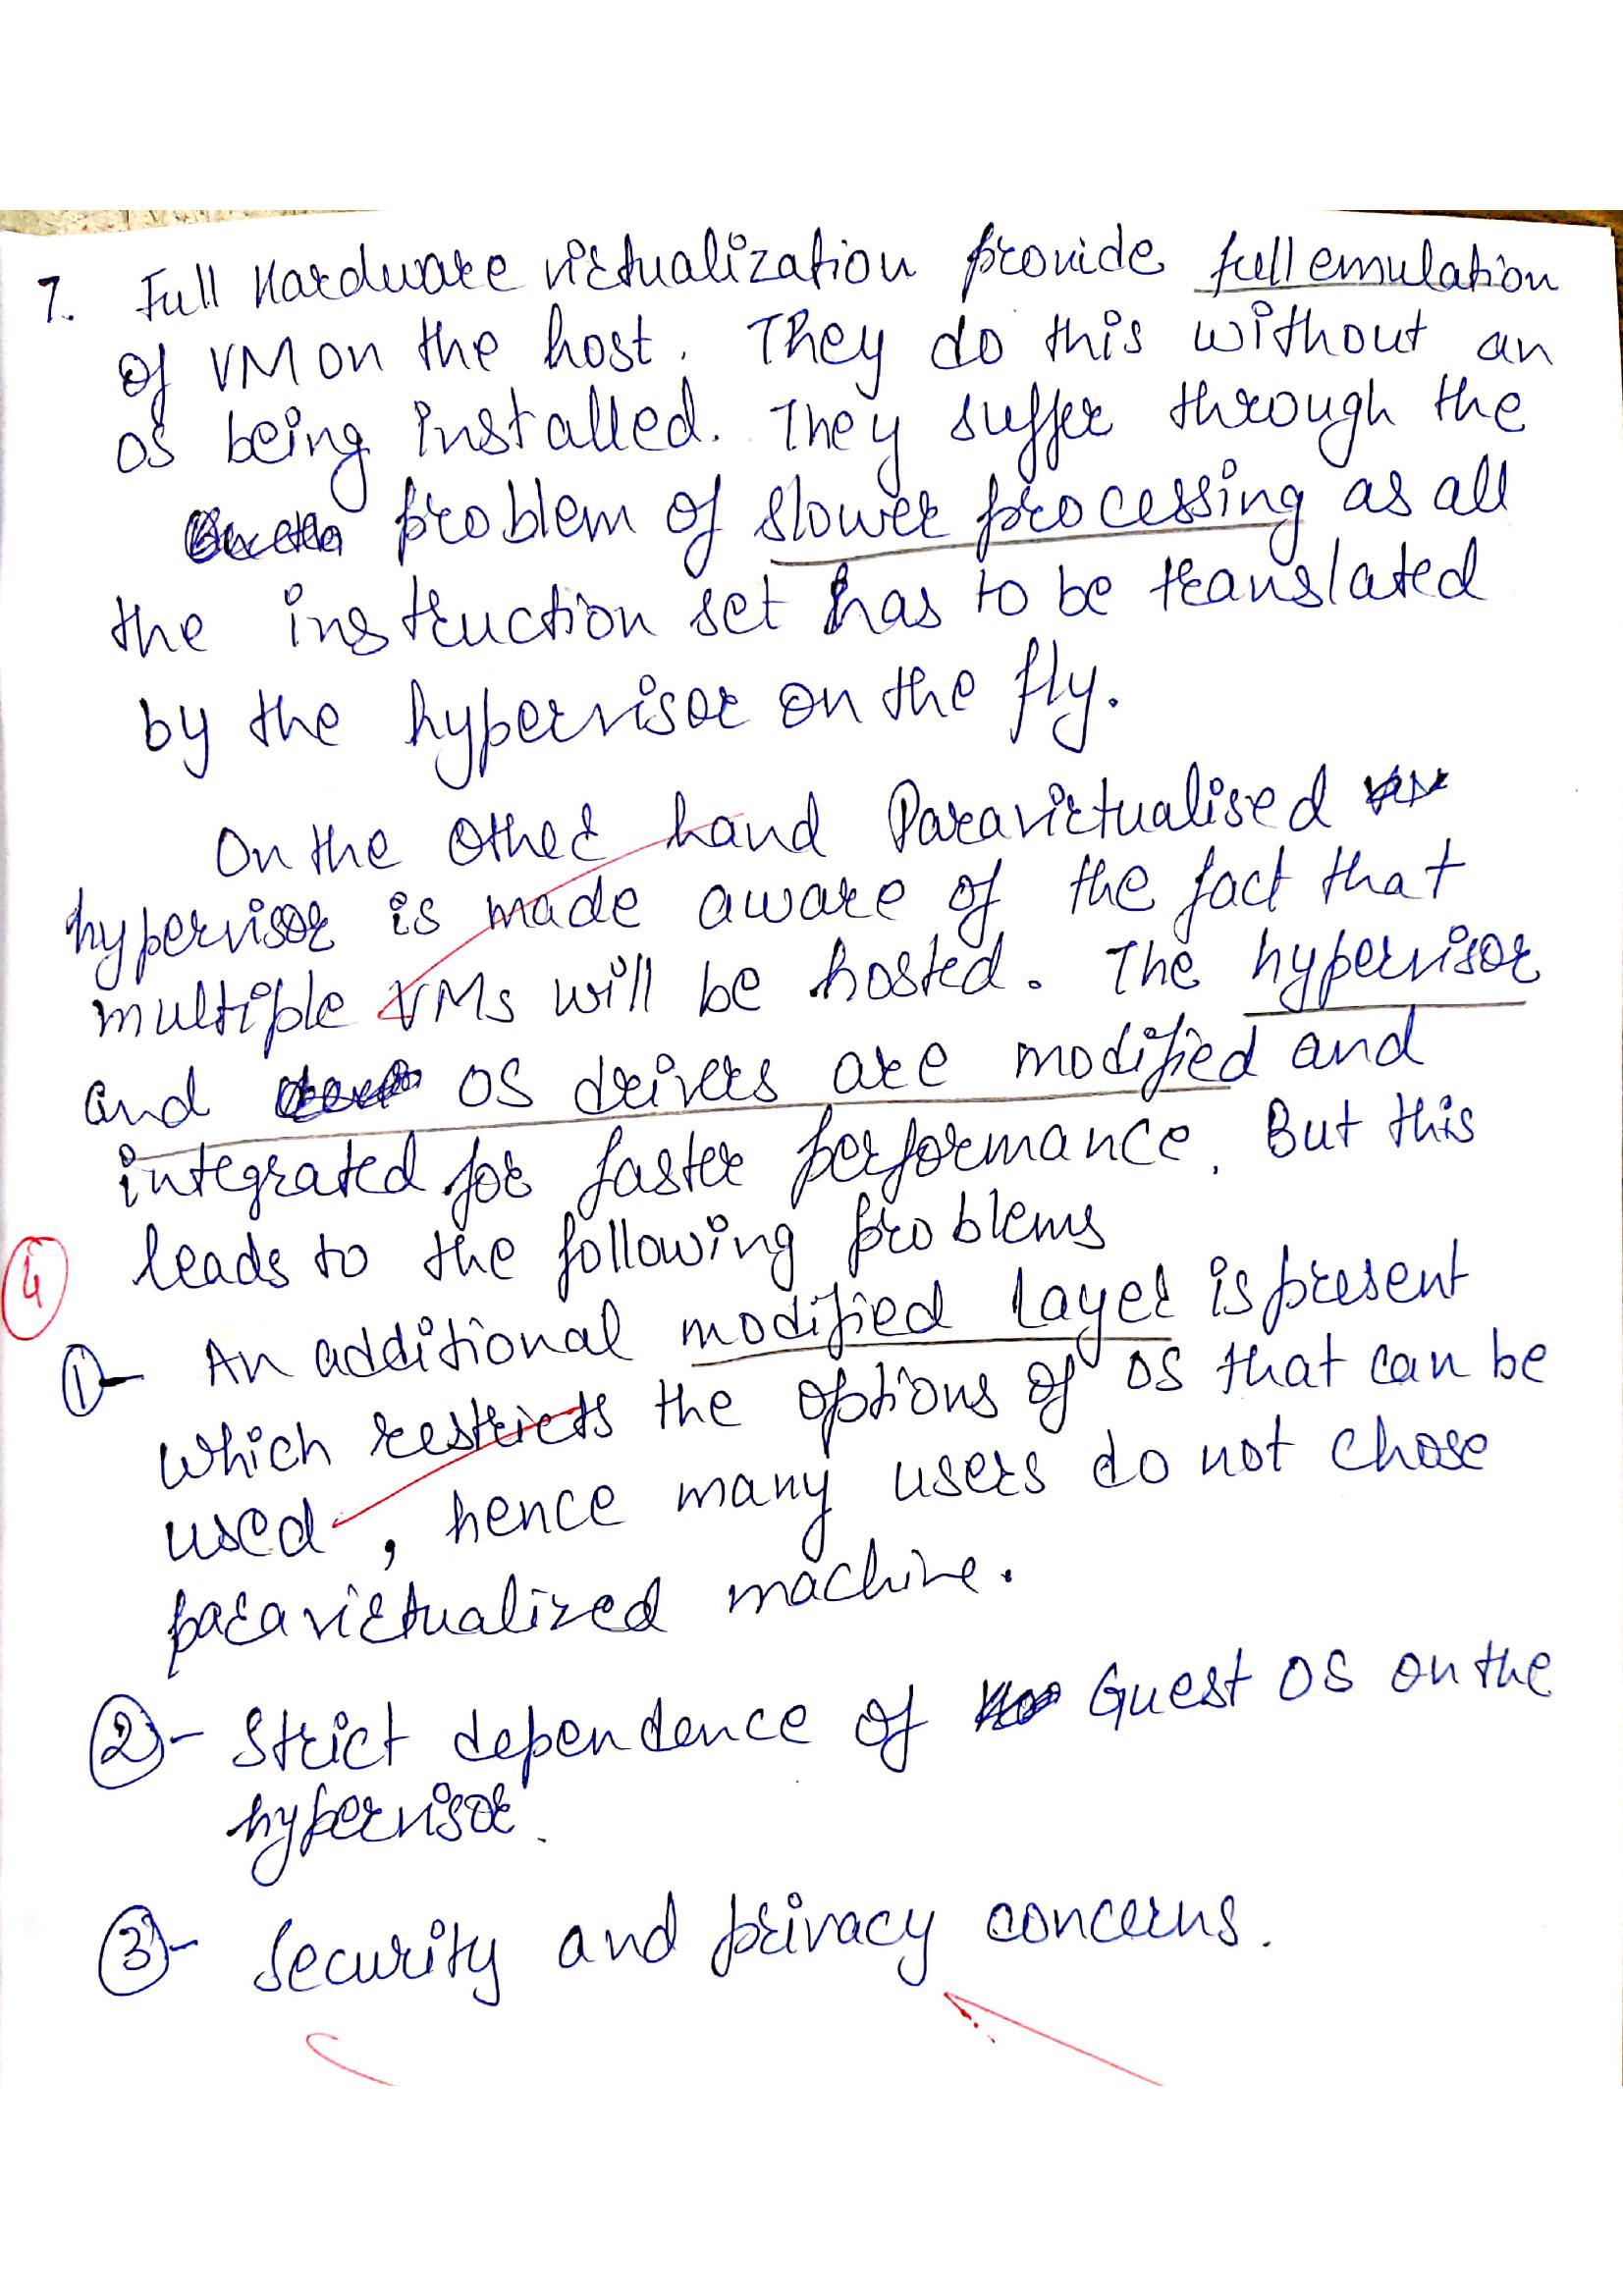 7. Full Hardware virtualization provide full emulation
of VM on the host. They do this without an
OS being installed. They suffer through the
problem of slower processing as all
the instruction set has to be translated
by the hypervisor on the fly.
On the other hand Paravirtualised
hypervisor is made aware of the fact that
multiple VMs will be hosted. The hypervisor
and OS drivers are modified and
integrated for faster performance. But this
leads to the following problems
4
1- An additional modified layer is present
which restricts the options of OS that can be
used, hence many users do not chose
paravirtualized machine.
2- Strict dependence of Guest OS on the
hypervisor.
3- Security and privacy concerns.